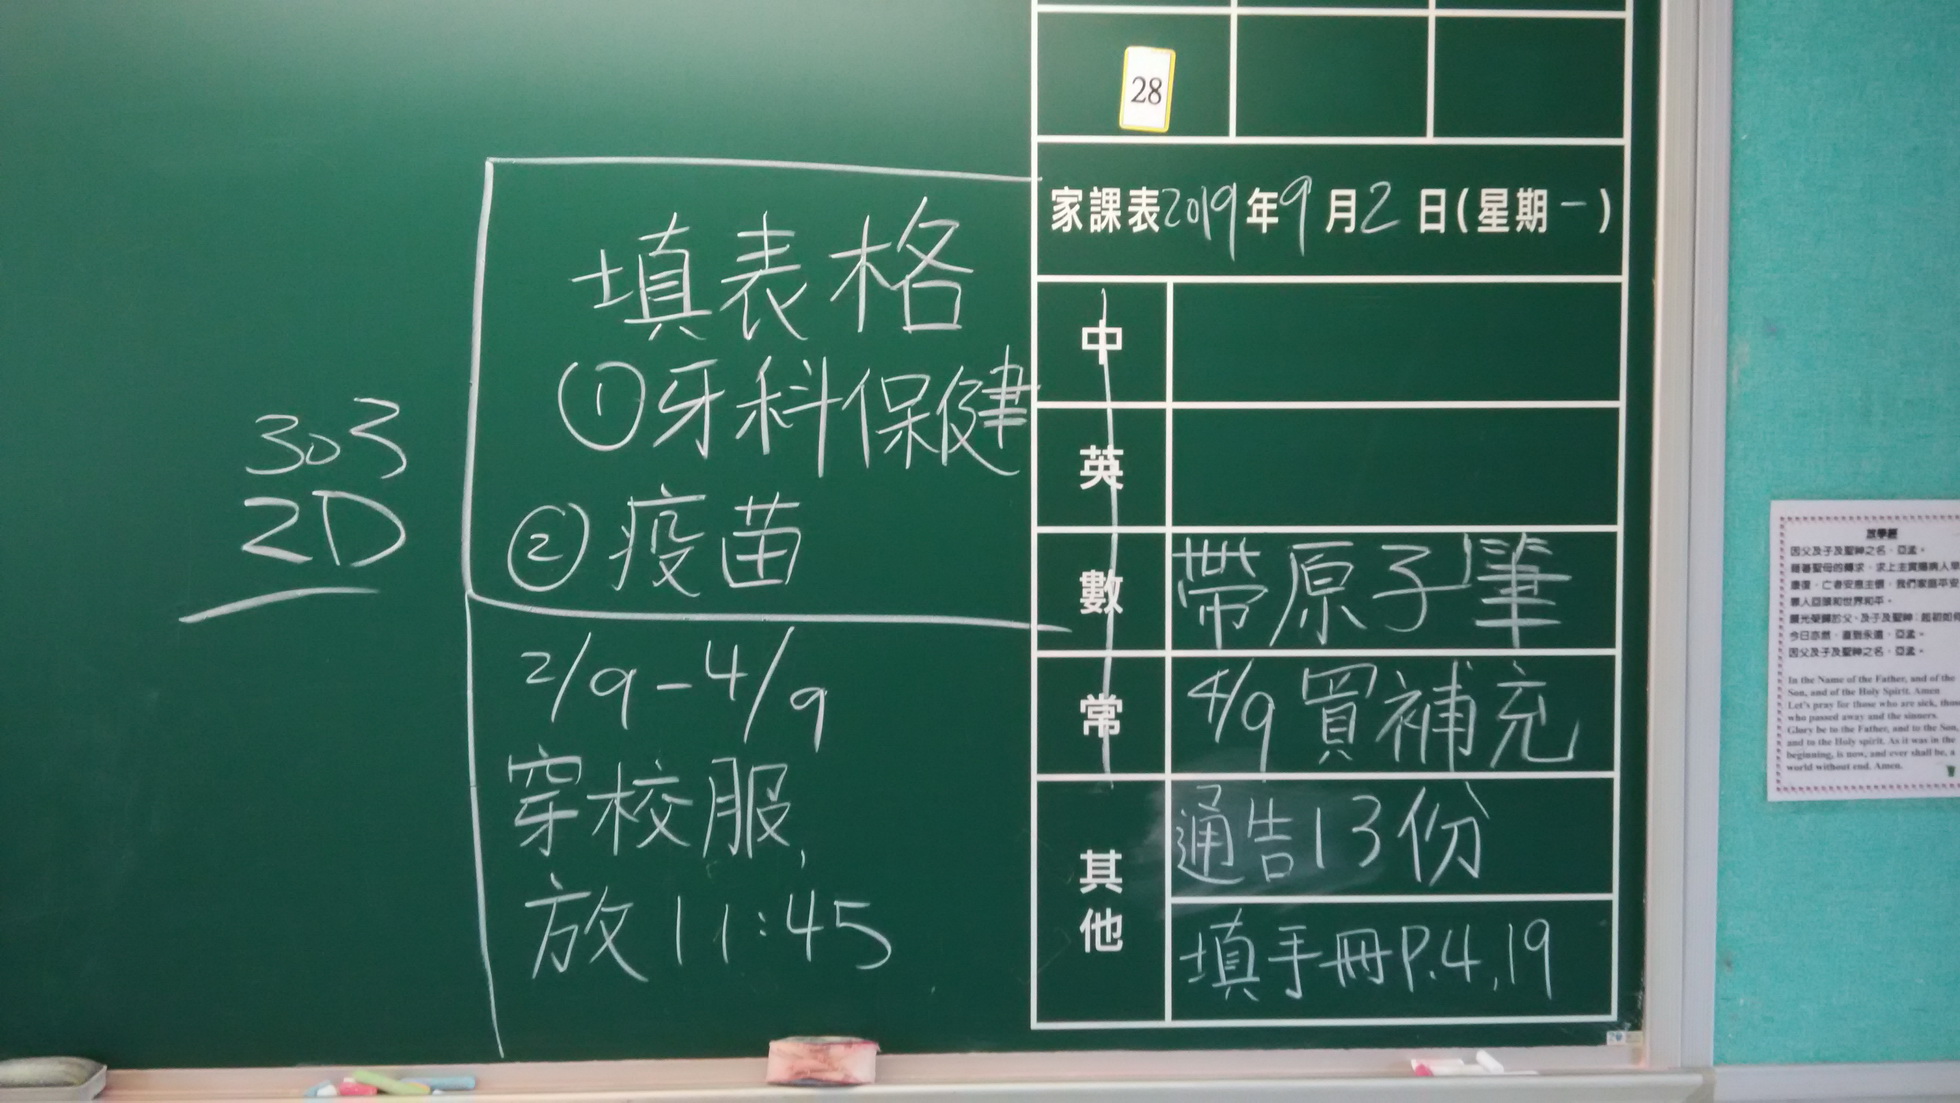 303
2D
填表格
①牙科保健
②疫苗
2/9-4/9
穿校服,
放11:45
28
家課表2019年9月2日(星期一)
中
英
數 帶原子筆
常 4/9買補充
其他 通告13份
填手冊P.4,19
放學經
因父及子及聖神之名．亞孟。
今日亦然，直到永遠．亞孟。
因父及子及聖神之名．亞孟。
In the Name of the Father, and of the
Son, and of the Holy Spirit. Amen
Let's pray for those who are sick, those
who passed away and the sinners.
Glory be to the Father, and to the Son,
and to the Holy spirit. As it was in the
beginning, is now, and ever shall be, a
world without end. Amen.